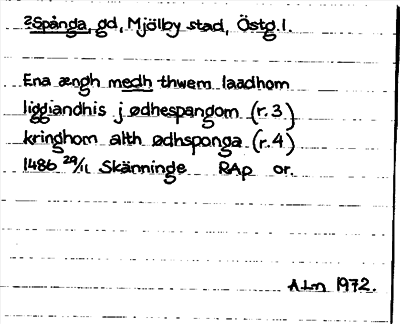 ²Spånga, gd, Mjölby stad, Östg.l.
Ena ængh medh thwem laadhom
liggiandhis j ødhespangom (r.3)
kringhom alth ødhsponga (r.4)
1486 29/11 Skänninge RAp or.
A.Lm 1972.